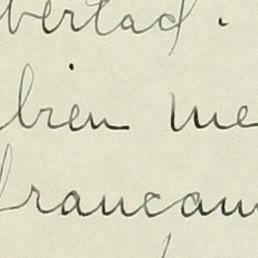 bertad.
bien me
francam